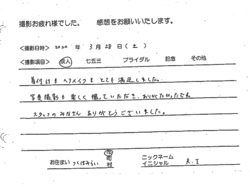 撮影お疲れ様でした。　感想をお願いいたします。
<撮影日時> 2020年 3月28日(土)
<撮影項目> 成人 七五三 ブライダル 記念 その他
着付けもヘアメイクもとても満足しました。
写真撮影も楽しく撮っていただき、ありがたかったです。
スタッフのみなさん ありがとうございました。
お住まい つくばみらい 市 町 村
ニックネーム イニシャル R.I